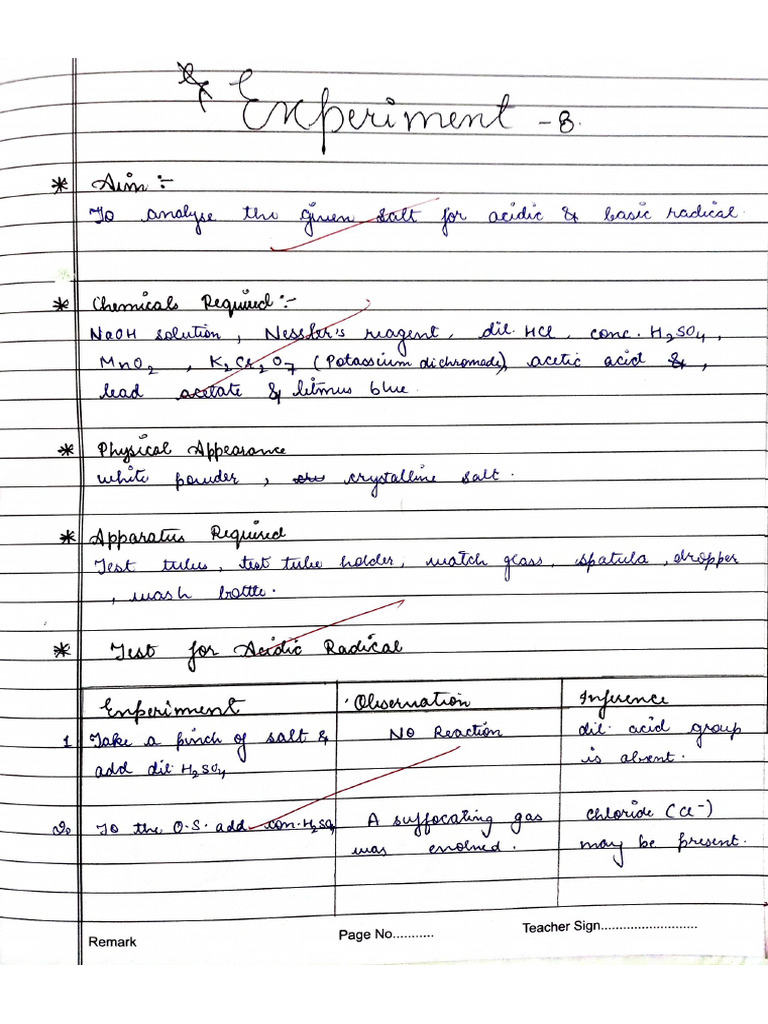 Experiment - 8.
* Aim :-
To analyse the given salt for acidic & basic radical.
* Chemicals Required :-
NaOH solution, Nessler's reagent, dil. HCl, conc. H₂SO₄,
MnO₂, K₂Cr₂O₇ (Potassium dichromade), acetic acid &,
lead acetate & litmus blue.
* Physical Appearance
white powder, crystalline salt.
* Apparatus Required
Test tubes, test tube holder, watch glass, spatula, dropper
, wash bottle.
* Test for Acidic Radical
Experiment Observation Inference
1 Take a pinch of salt & No Reaction dil. acid group
add dil. H₂SO₄ is absent.
2. To the O.S. add con. H₂SO₄ A suffocating gas chloride (Cl⁻)
was evolved. may be present.
Remark Page No........... Teacher Sign..........................